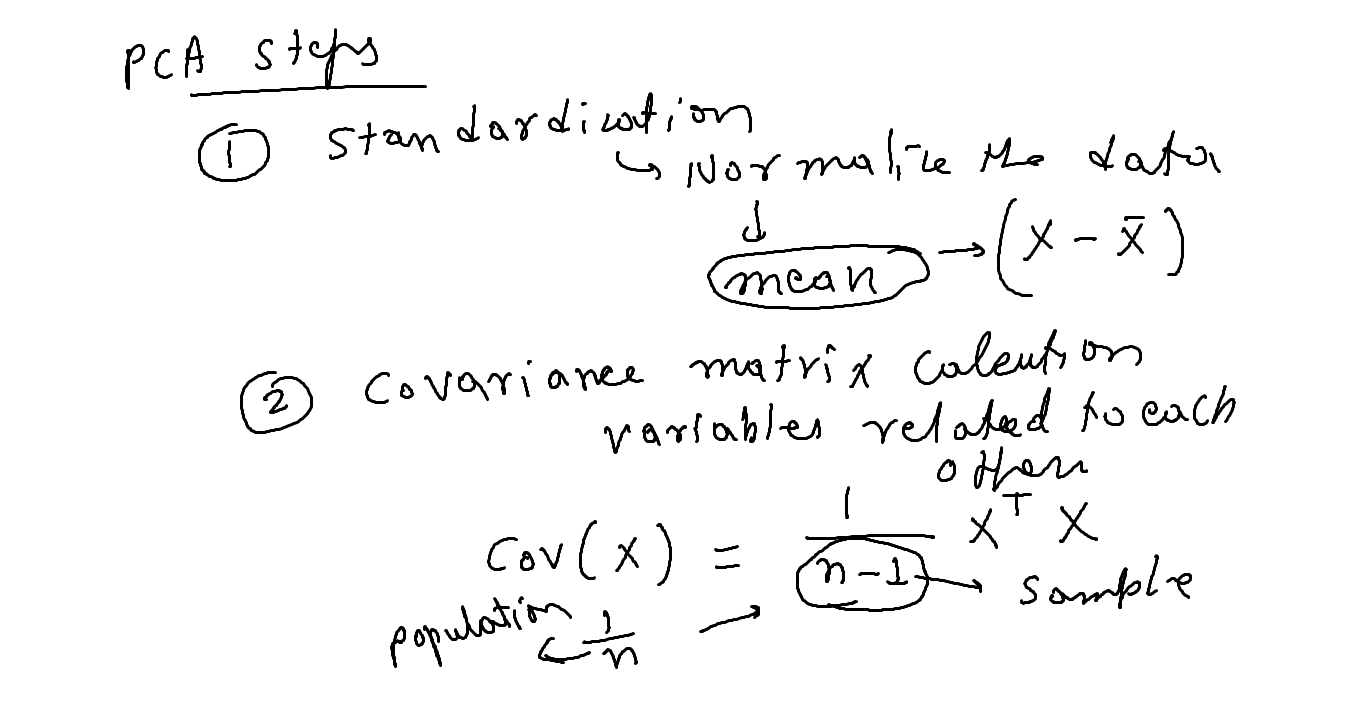 PCA steps
① Standardization
↳ Normalize the data
↓
mean → (X - x̄)
② Covariance matrix
variables related to each
other
Cov(X) = 1/(n-1) Xᵀ X
→ sample
population ← 1/n →